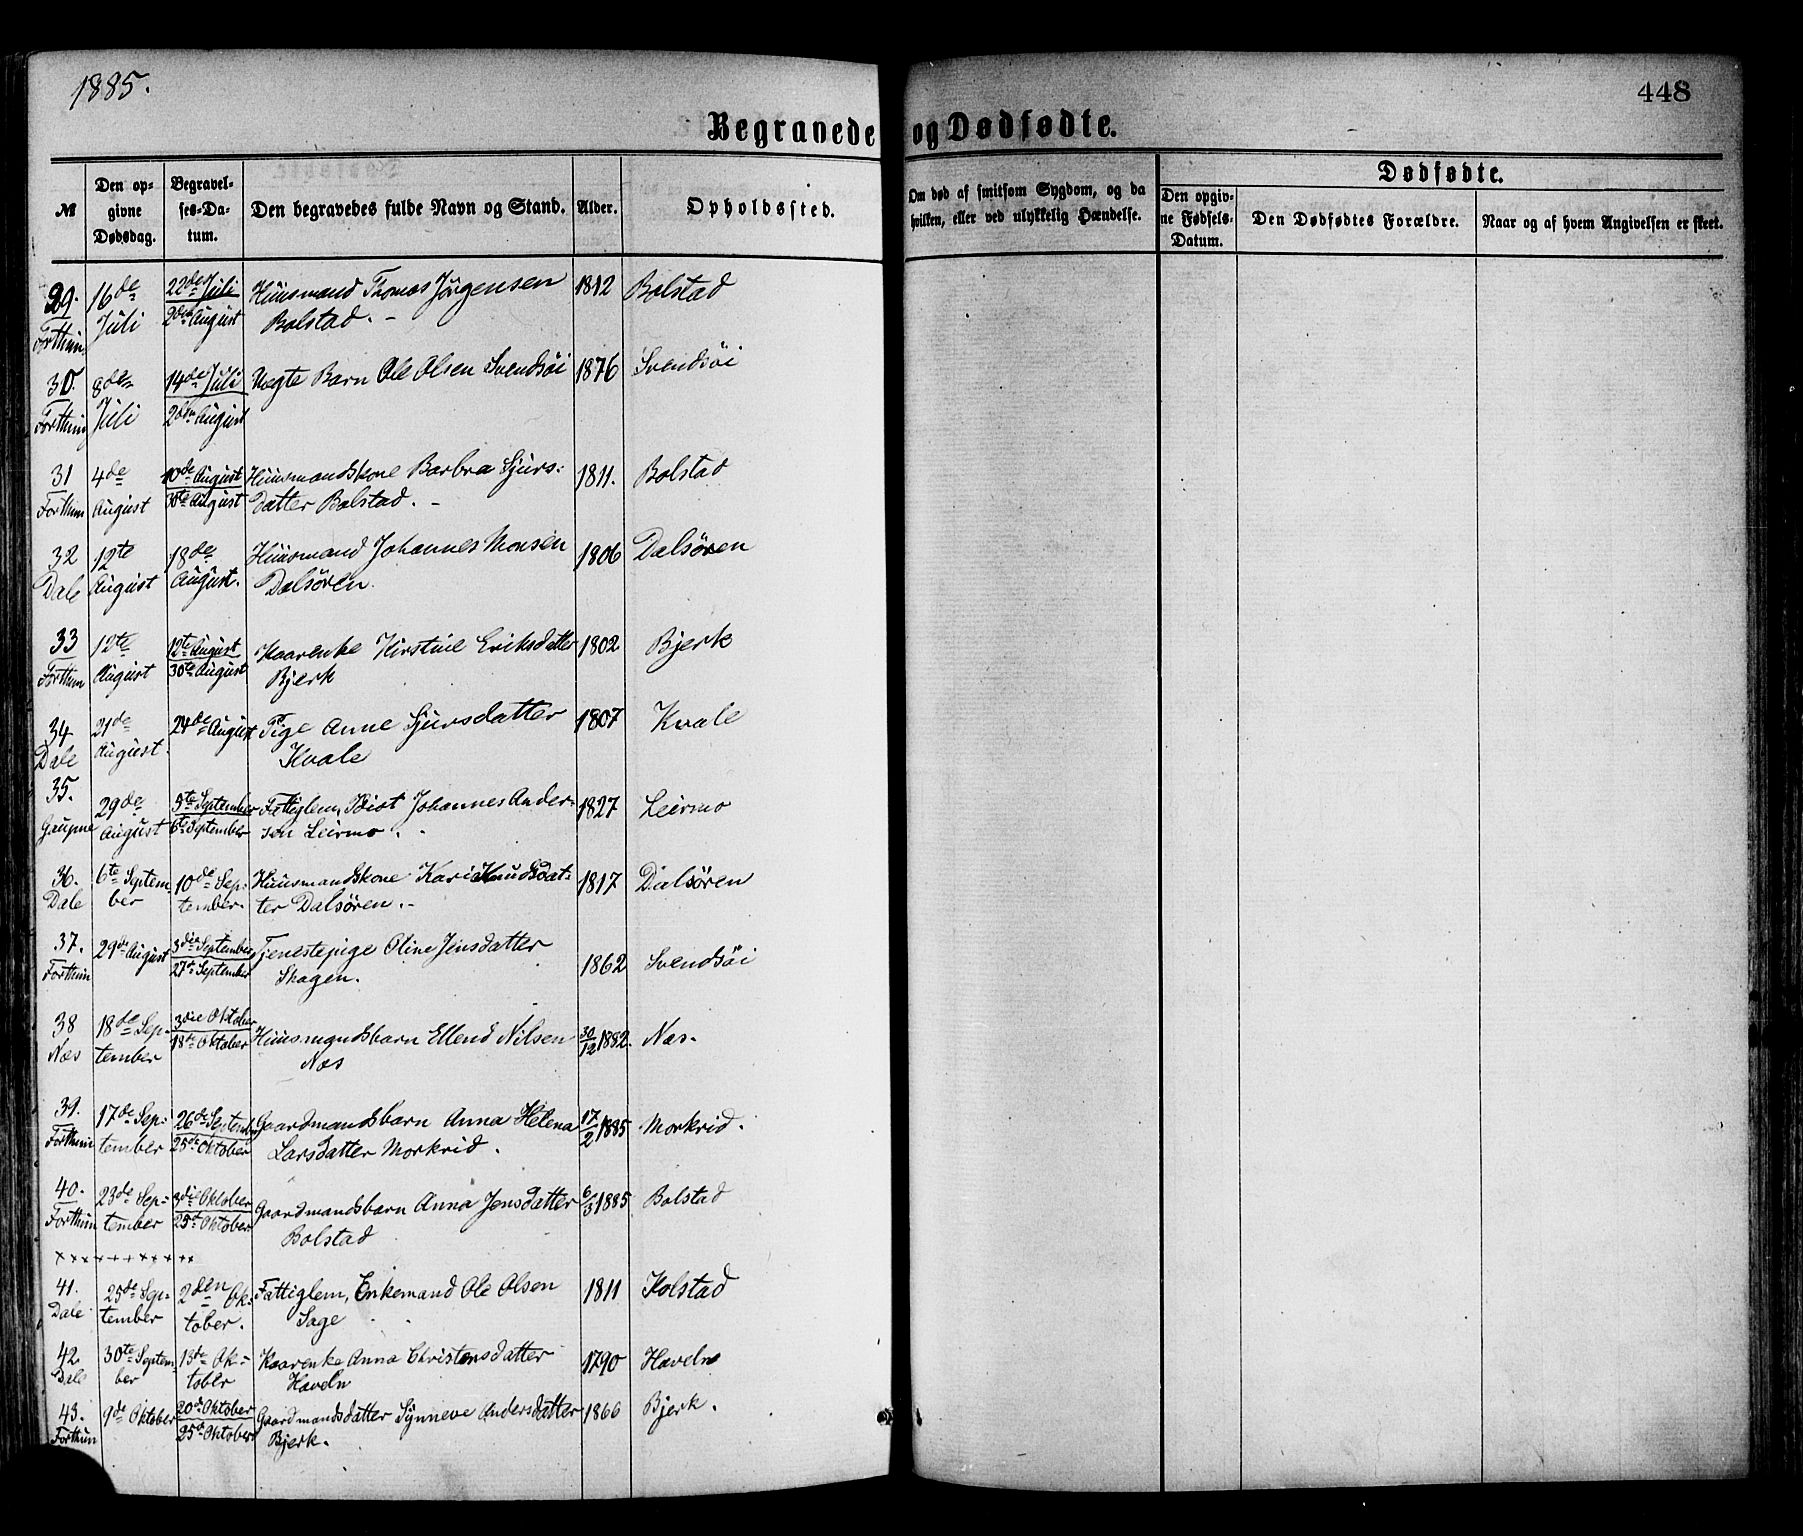 1885.
448
Begravede og Dødfødte.
№
Den opgivne Dødsdag.
Begravelses-Datum.
Den begravedes fulde Navn og Stand.
Alder.
Opholdssted.
Om død af smitsom Sygdom, og da hvilken, eller ved ulykkelig Hændelse.
Dødfødte.
Den opgivne Fødsels-Datum.
Den Dødfødtes Forældre.
Naar og af hvem Angivelsen er skeet.
29. Forthun 16de Juli 22de Juli 2den August Huusmand Thomas Jörgensen Bolstad. - 1812 Bolstad
30. Forthun 8de Juli 14de Juli 2den August Nægte Barn Ole Olsen Svendsöi 1876 Svendsöi
31 Forthun 4de August 10de August 30te August Huusmandskone Barbra Sjurs: datter Bolstad. - 1811. Bolstad
32 Dale 12te August 18de August. Huusmand Johannes Monsen Dalsören. 1806 Dalsören
33 Forthun 12te August 12te August 30te August Kaarenke Kirstine Eriksdatter Bjerk 1802 Bjerk
34 Dale 21de August. 24de August Pige Anne Sjursdatter Kvale 1807 Kvale
35. Gaupne 29de August 5te September 6te September Fattiglem, Idiot Johannes Ander- sen Leirmo. 1827 Leirmo
36. Dale 6te Septem- ber 10de Sep- tember. Huusmandskone Kari Knudsdat- ter Dalsören. - 1817 Dalsören
37. Forthun 29de August 3die September 27de September Tjenestepige Oline Jensdatter Skagen. 1862 Svendsöi
38 Næs 18de Sep- tember 3die Oktober 18de Oktober Huusmandsbarn Ellend Nilsen Næs 30/12 1882. Næs.
39. Forthun 17de Sep- tember 26de September 25de Oktober Gaardmandsbarn Anna Helena Larsdatter Morkrid. 17/2 1885 Morkrid.
40. Forthun 23de Sep- tember 3die Oktober 25de Oktober Gaardmandsbarn Anna Jensdatter Bolstad 6/3 1885 Bolstad
× × × × × × × × × ×
41. Dale 25de Sep- tember 2den Ok- tober. Fattiglem, Enkemand Ole Olsen Sage 1811 Kolstad
42 Dale 30te Septem- ber 13de Ok- tober Kaarenke Anna Christensdatter Haveln 1790 Haveln
43. Forthun 9de Oktober 20de Oktober 25de Oktober Gaardmandsdatter Synneve Andersdatter Bjerk. 1866 Bjerk.